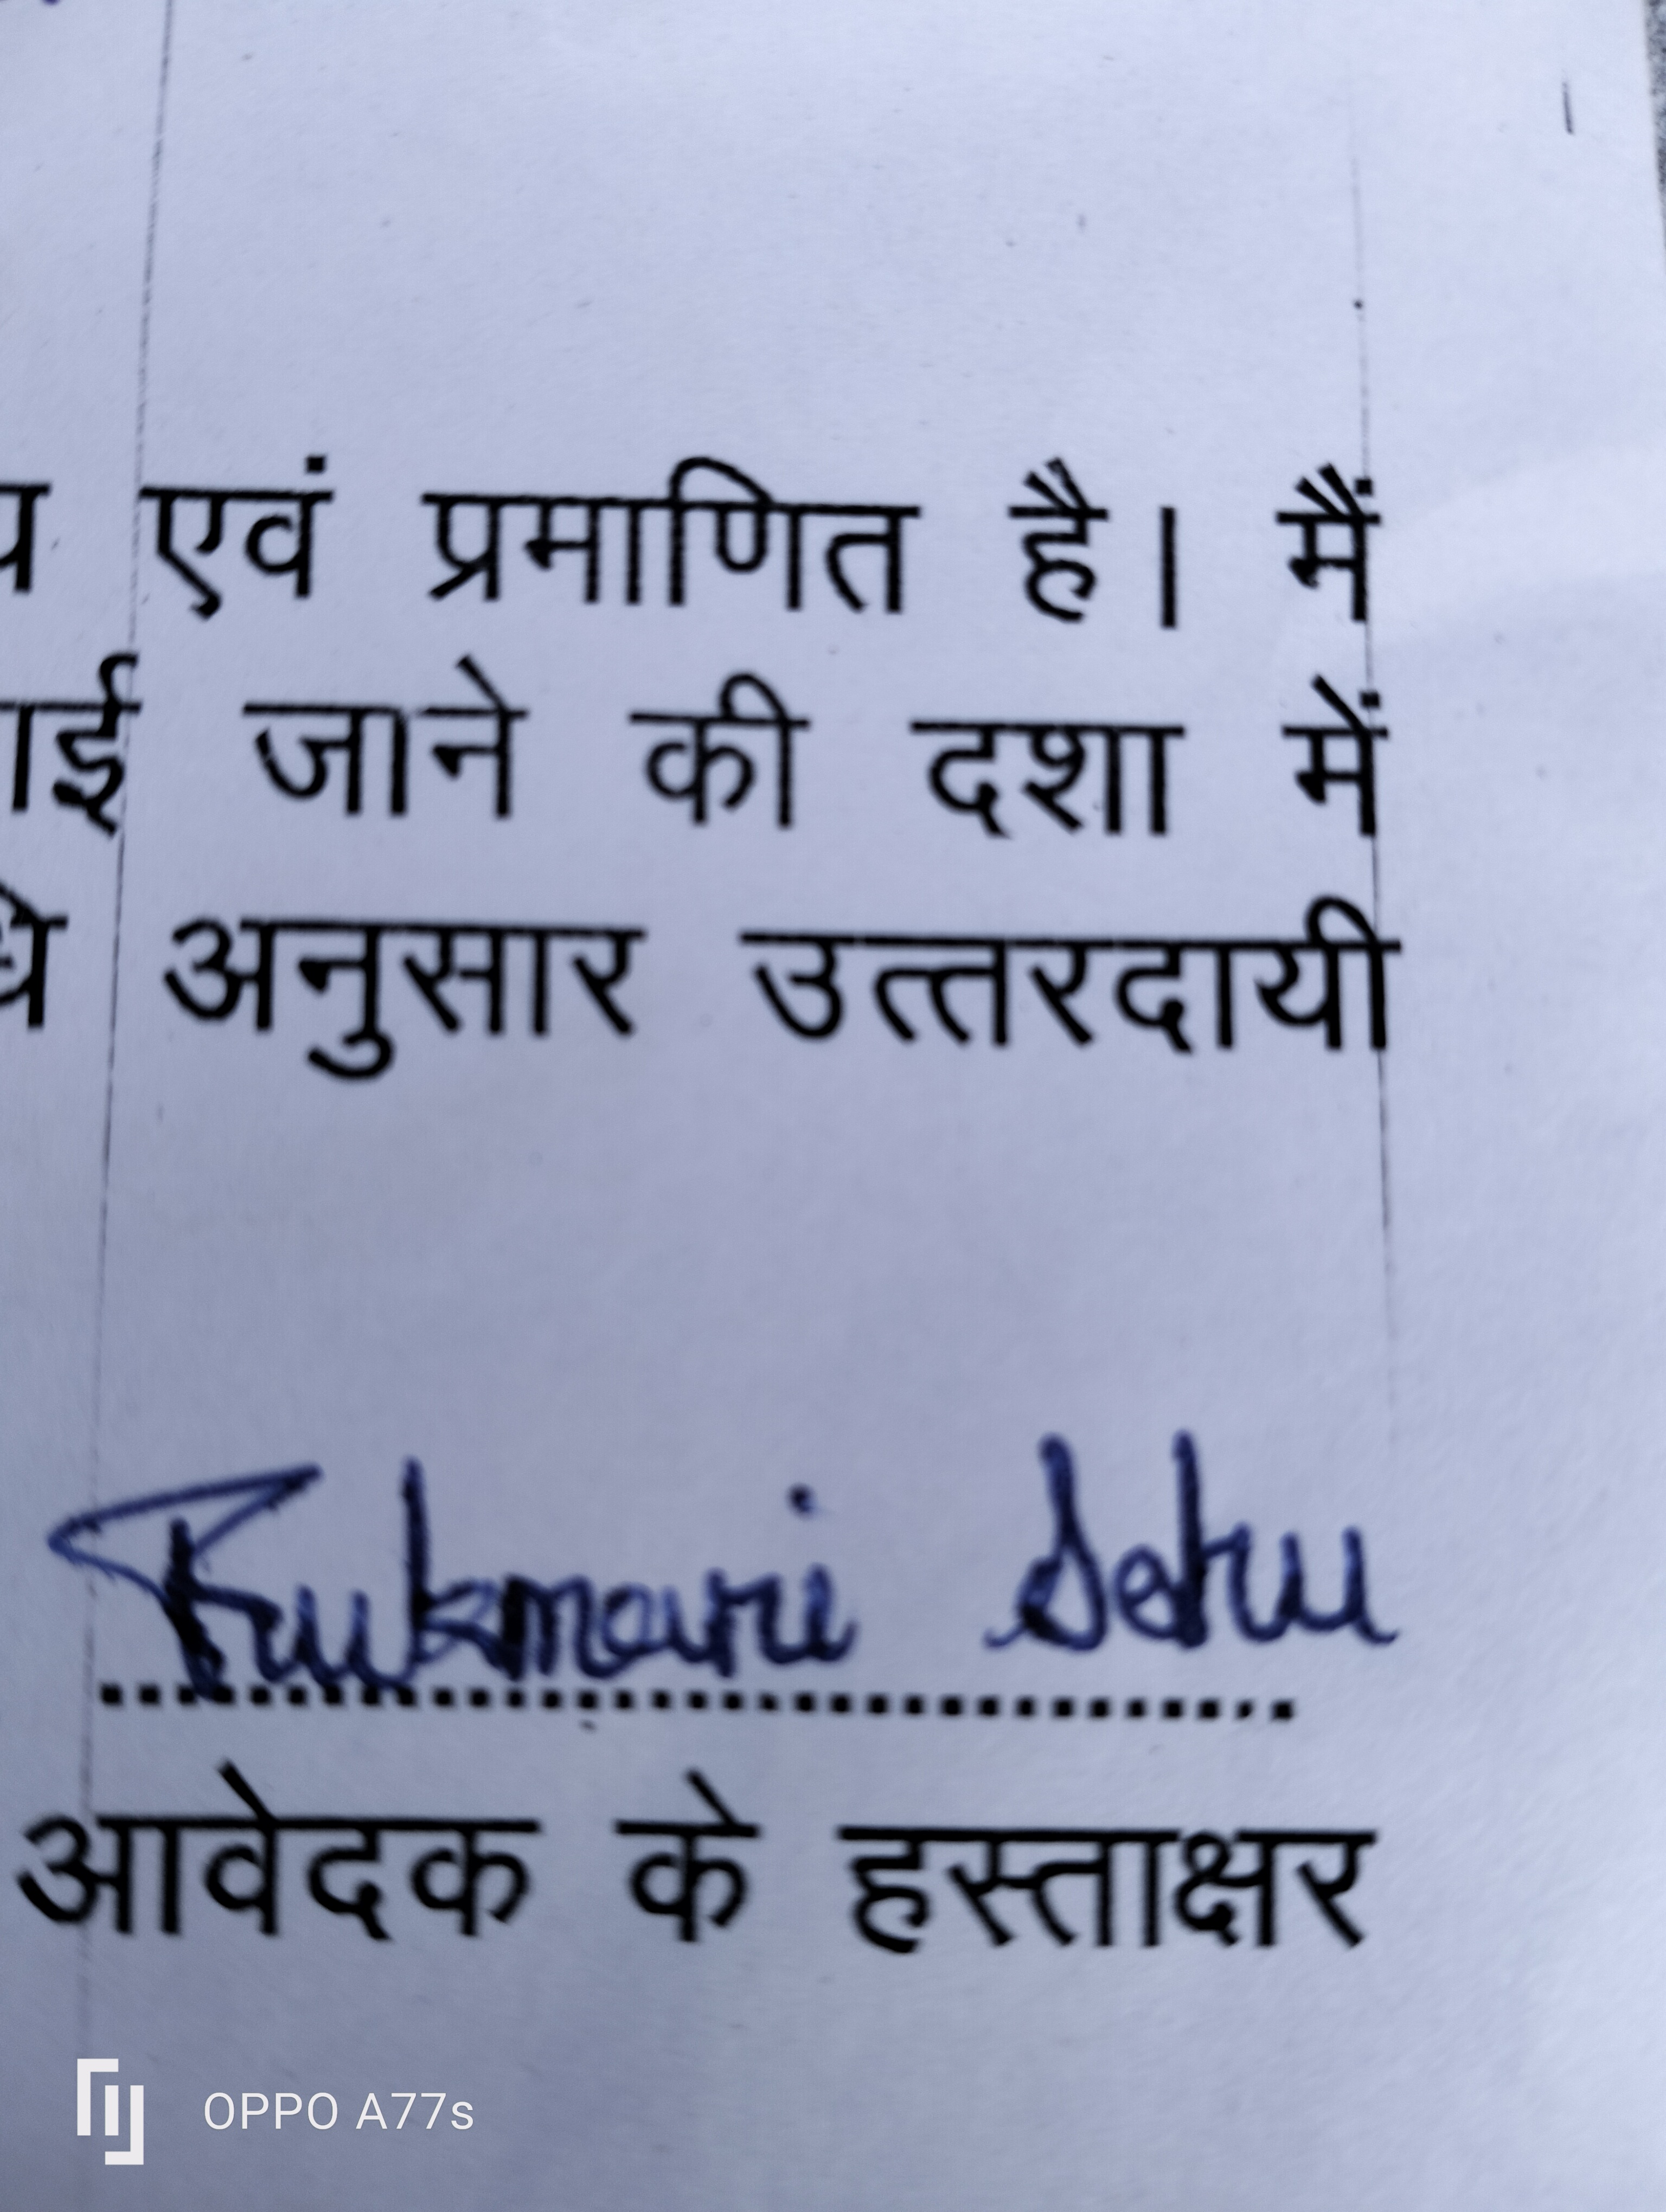 एवं प्रमाणित है। मैं
जाने की दशा में
अनुसार उत्तरदायी
Rukmani Sahu
आवेदक के हस्ताक्षर
OPPO A77s